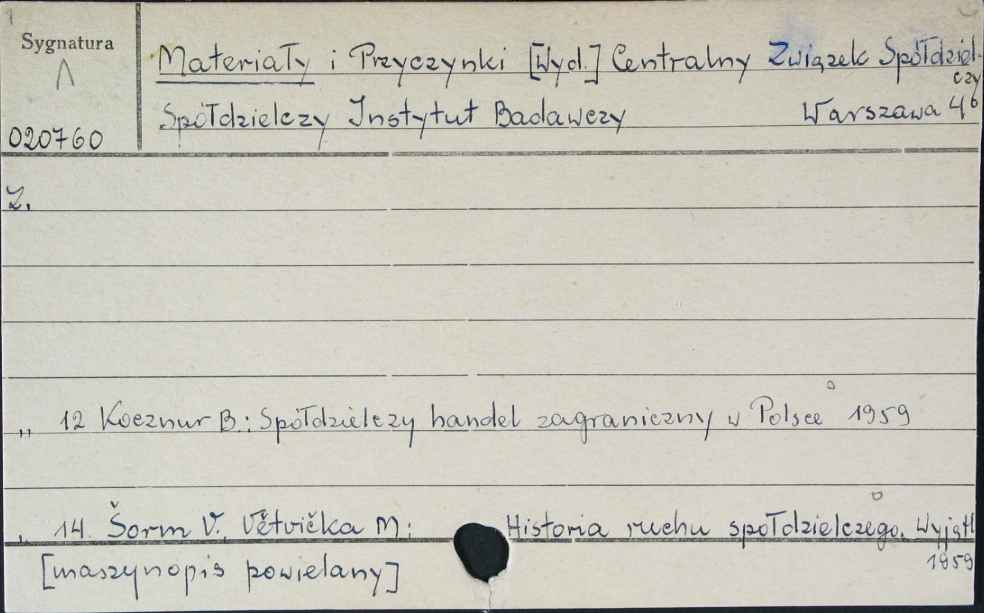 Sygnatura
Materiały i Przyczynki [Wyd.] Centralny Związek Spółdziel-
czy
Spółdzielczy Instytut Badawczy Warszawa 4°
020760
Z.
„ 12 Kocznur B.: Spółdzielczy handel zagraniczny w Polsce 1959
„ 14. Šorm V. Větvička M: Historia ruchu spółdzielczego. Wyjątk
1959
[maszynopis powielany]